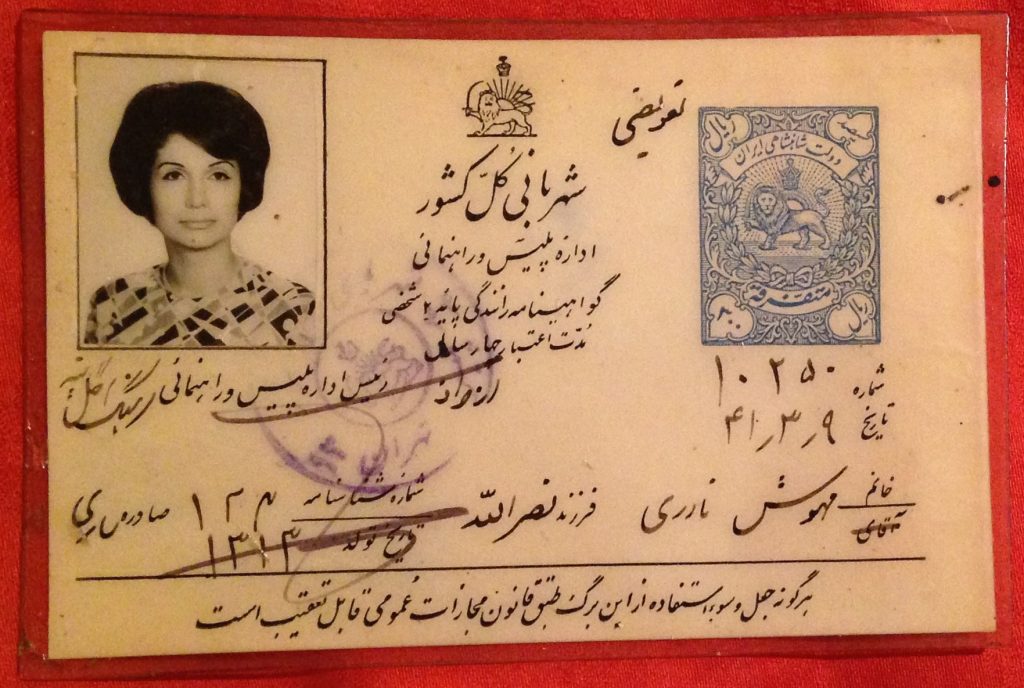 تعویضی
شهربانی کل کشور
اداره پلیس و راهنمائی
گواهینامه رانندگی پایه ۲ شخصی
مدت اعتبار چهار سال
رئیس اداره پلیس و راهنمائی
ریال
دولت شاهنشاهی ایران
متفرقه
ریال
شماره ۱۰۲۵۰
تاریخ ۴۱٫۳٫۹
تهران
خانم
آقای
مهوش نادری فرزند نصرالله
شماره شناسنامه
تاریخ تولد ۱۳۱۳
صادره
هرگونه جعل و سوء استفاده از این برگ طبق قانون مجازات عمومی قابل تعقیب است